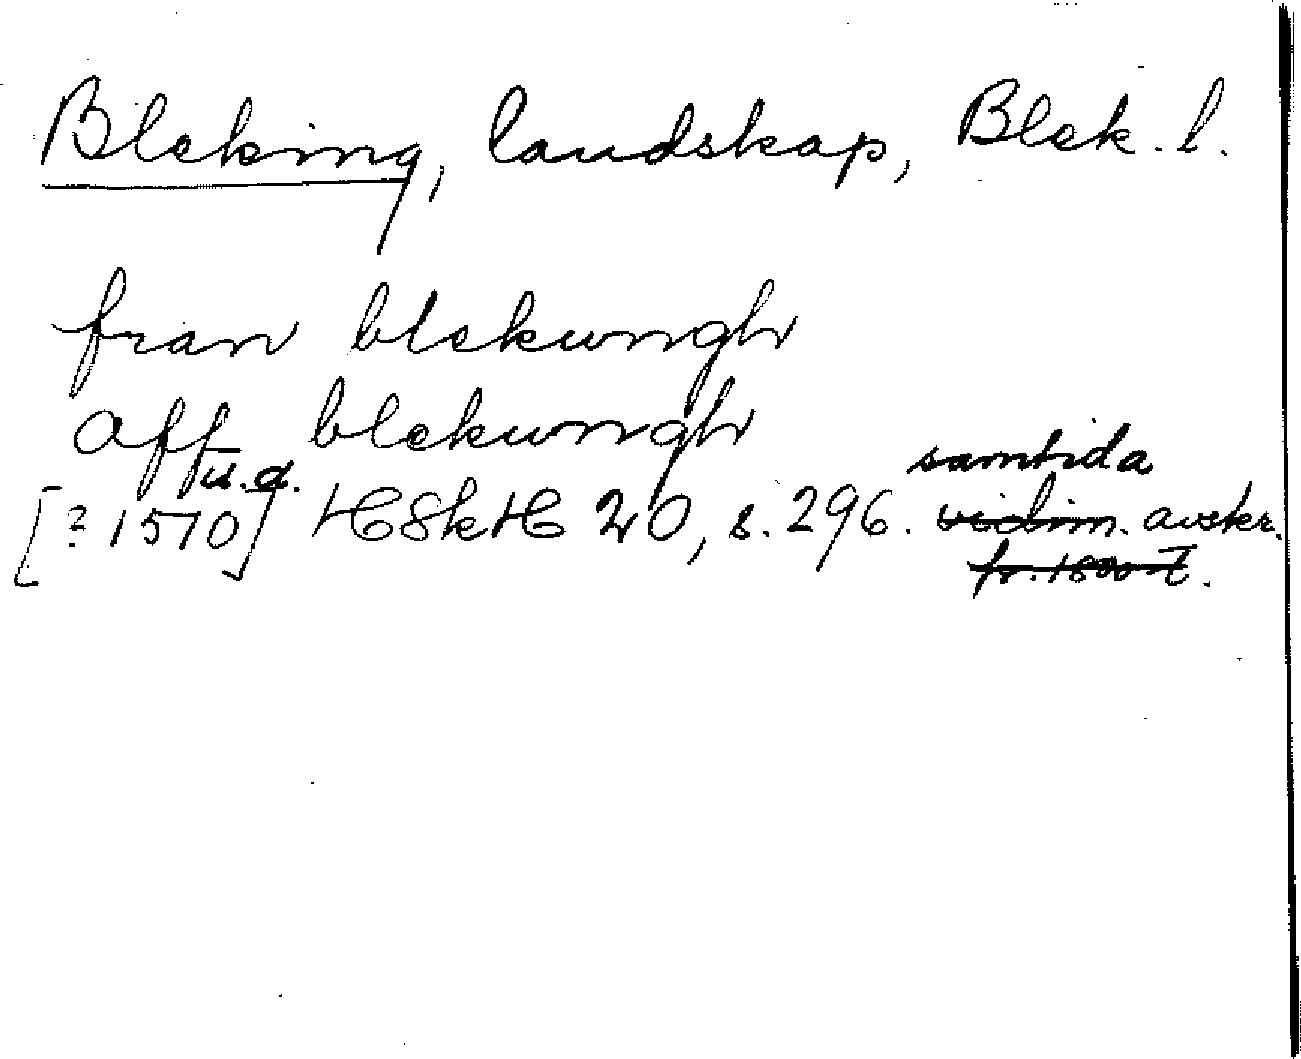 Bleking, landskap, Blek. l.
fran blekungh
aff blekungh
u.d. samtida
[? 1570] HSkH 20, s. 296. vidim. avskr.
fr. 1500-t.